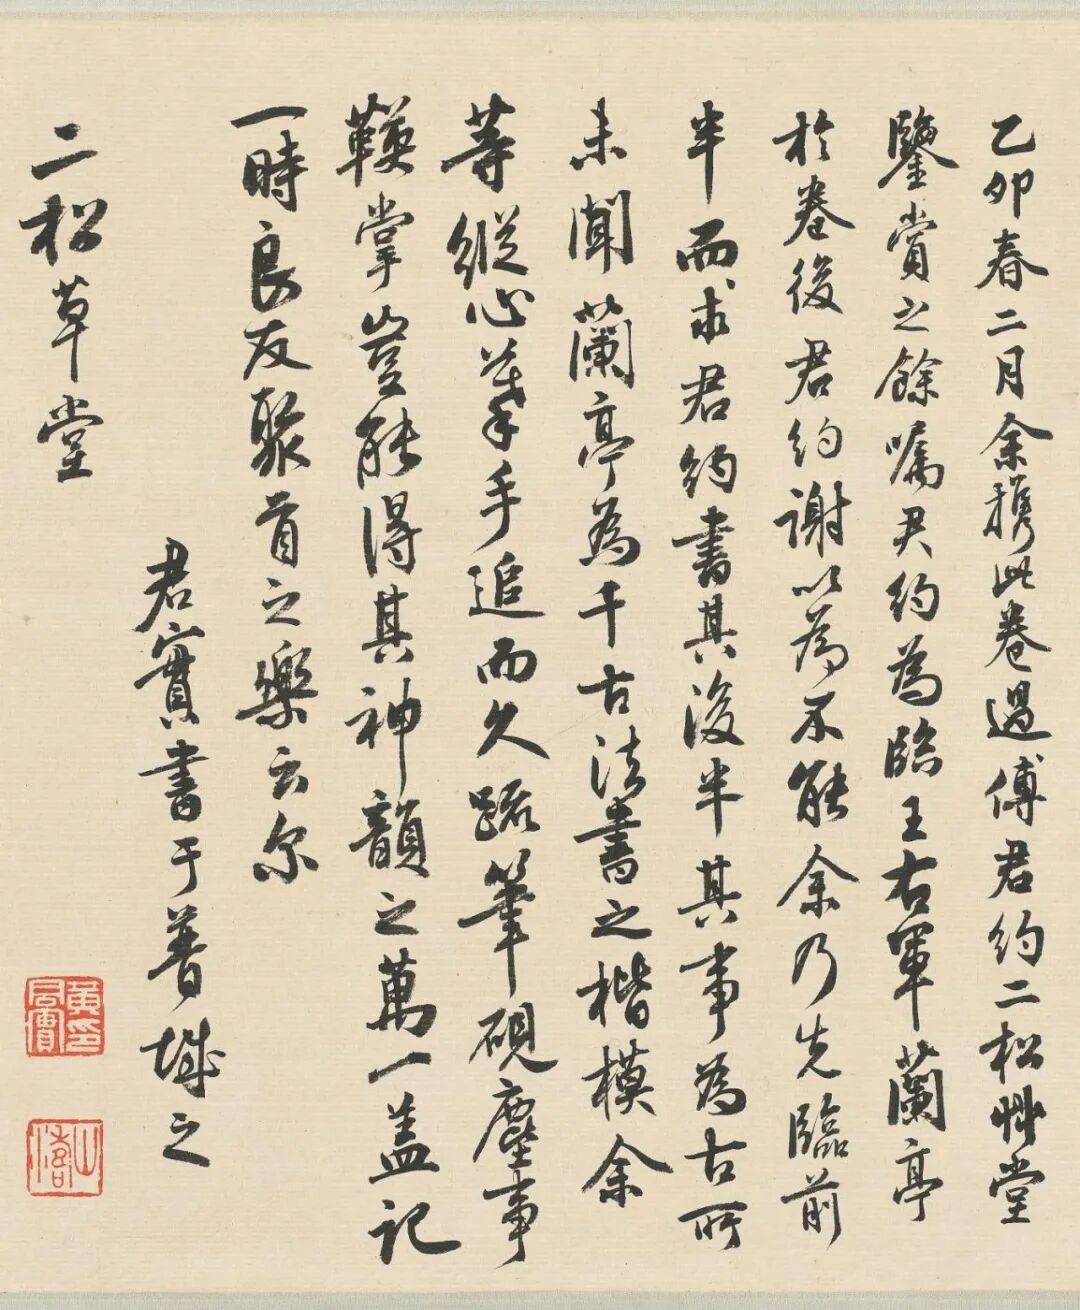 乙卯春二月余携此卷過傅君約二松艸堂
鑒賞之餘嘱君約為臨王右軍蘭亭
於卷後君約謝以為不能余乃先臨前
半而求君約書其後半其事為古所
未聞蘭亭為千古法書之楷模余
等縱心摹手追而久疏筆硯塵事
鞅掌豈能得其神韻之萬一盖記
一時良友聚首之樂云尔
君實書于普城之
二松草堂
黄君實印